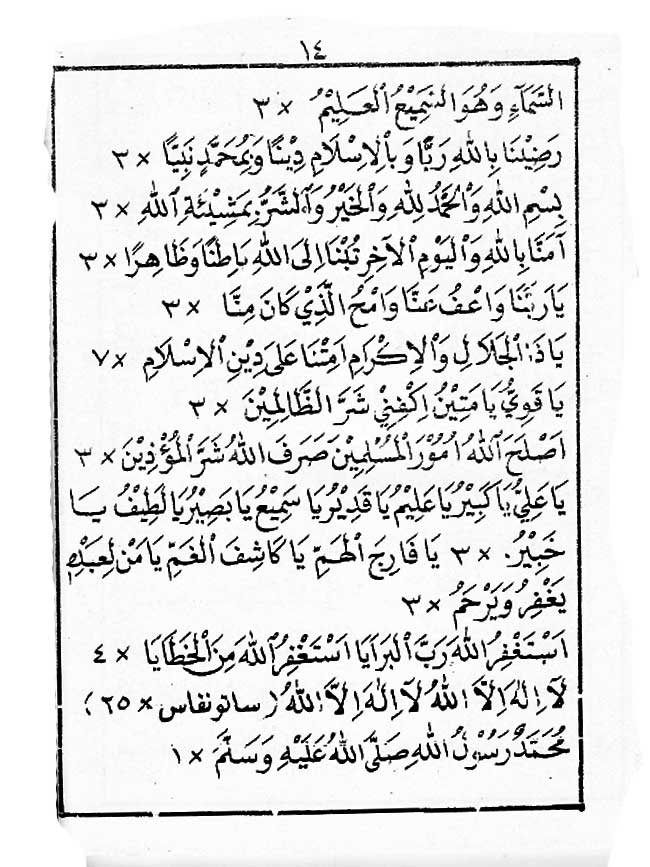 ١٤
السَّمَآءِ وَهُوَ السَّمِيْعُ الْعَلِيْمُ × ٣
رَضِيْنَا بِاللهِ رَبًّا وَبِالْاِسْلَامِ دِيْنًا وَبِمُحَمَّدٍ نَبِيًّا × ٣
بِسْمِ اللهِ وَالْحَمْدُ لِلهِ وَالْخَيْرُ وَالشَّرُّ بِمَشِيْئَةِ اللهِ × ٣
آمَنَّا بِاللهِ وَالْيَوْمِ الْآخِرِ تُبْنَا اِلَى اللهِ بَاطِنًا وَظَاهِرًا × ٣
يَارَبَّنَا وَاعْفُ عَنَّا وَامْحُ الَّذِيْ كَانَ مِنَّا × ٣
يَاذَا الْجَلَالِ وَالْاِكْرَامِ اَمِتْنَا عَلَى دِيْنِ الْاِسْلَامِ × ٧
يَا قَوِيُّ يَا مَتِيْنُ اِكْفِنِيْ شَرَّ الظَّالِمِيْنَ × ٣
اَصْلَحَ اللهُ اُمُوْرَ الْمُسْلِمِيْنَ صَرَفَ اللهُ شَرَّ الْمُؤْذِيْنَ × ٣
يَا عَلِيُّ يَا كَبِيْرُ يَا عَلِيْمُ يَا قَدِيْرُ يَا سَمِيْعُ يَا بَصِيْرُ يَا لَطِيْفُ يَا
خَبِيْرُ. × ٣ يَا فَارِجَ الْهَمِّ يَا كَاشِفَ الْغَمِّ يَا مَنْ لِعَبْدِهِ
يَغْفِرُ وَيَرْحَمُ × ٣
اَسْتَغْفِرُ اللهَ رَبَّ الْبَرَايَا اَسْتَغْفِرُ اللهَ مِنَ الْخَطَايَا × ٤
لَا اِلٰهَ اِلَّا اللهُ لَا اِلٰهَ اِلَّا اللهُ ( ساتو نفاس × ٢٥ )
مُحَمَّدٌ رَسُوْلُ اللهِ صَلَّى اللهُ عَلَيْهِ وَسَلَّمَ × ١